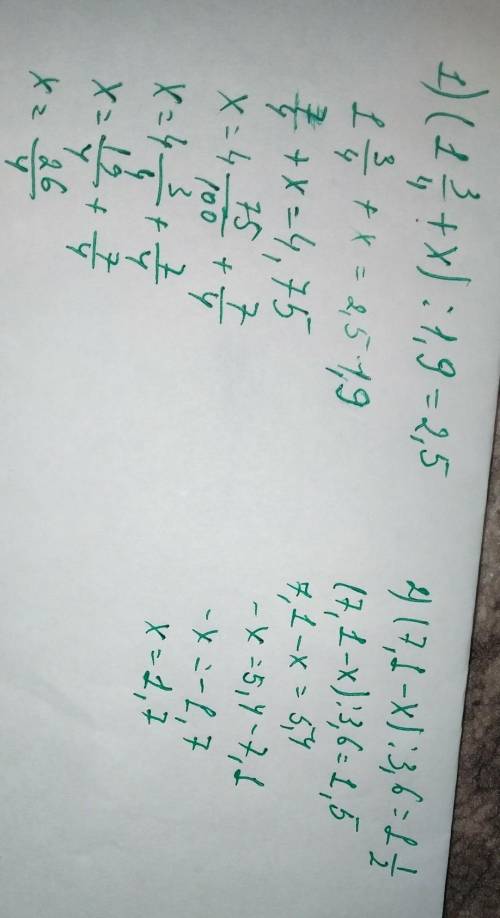 1) (1 3/4 + x) : 1,9 = 2,5
1 3/4 + x = 2,5 · 1,9
7/4 + x = 4,75
x = 4 75/100 + 7/4
x = 4 3/4 + 7/4
x = 19/4 + 7/4
x = 26/4
2) (7,1 - x) : 3,6 = 1 1/2
(7,1 - x) : 3,6 = 1,5
7,1 - x = 5,4
-x = 5,4 - 7,1
-x = -1,7
x = 1,7